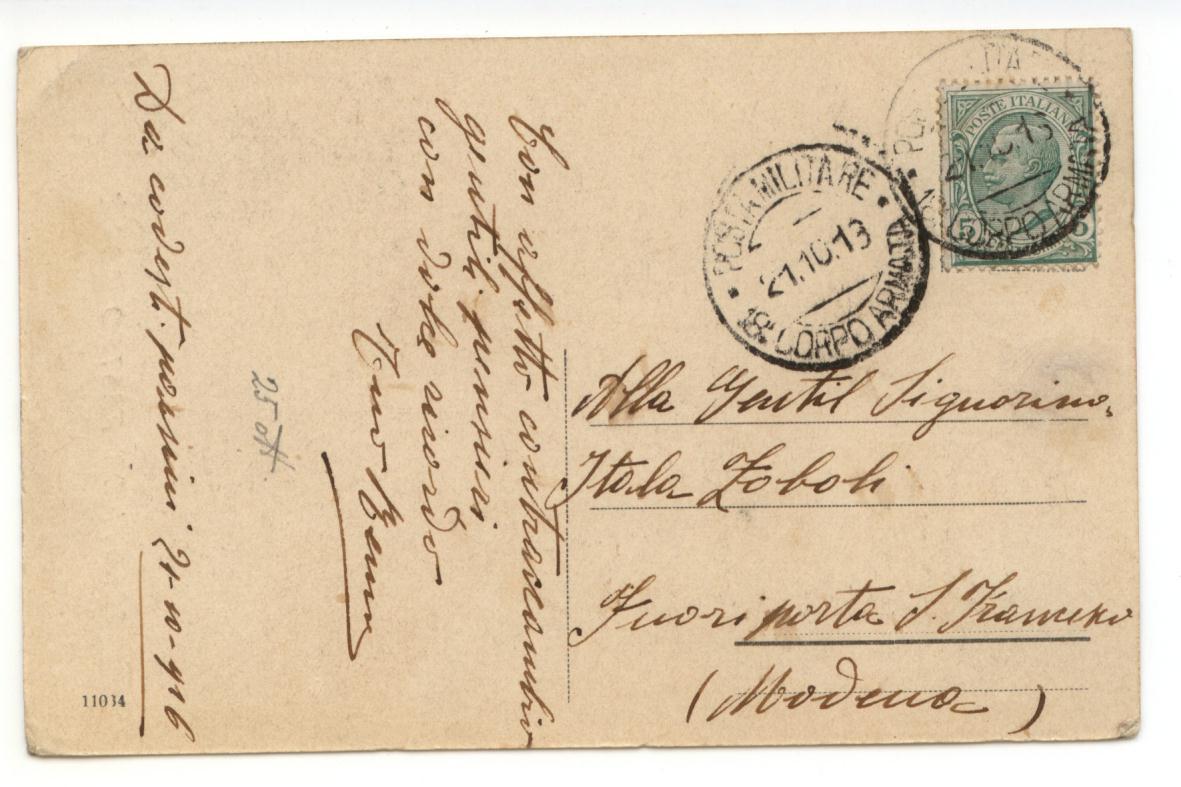 Da codesti 20-10-916
Con affetto contraccambio
gentili pensieri
con dolce ricordo
Tuo
25
11034
POSTE ITALIANE
5 5
POSTA MILITARE
21.10.1
CORPO ARMATA
POSTA MILITARE
21.10.13
18° CORPO ARMATA
Alla Gentil Signorina
Itala Zoboli
Fuori porta S. Francesco
(Modena)